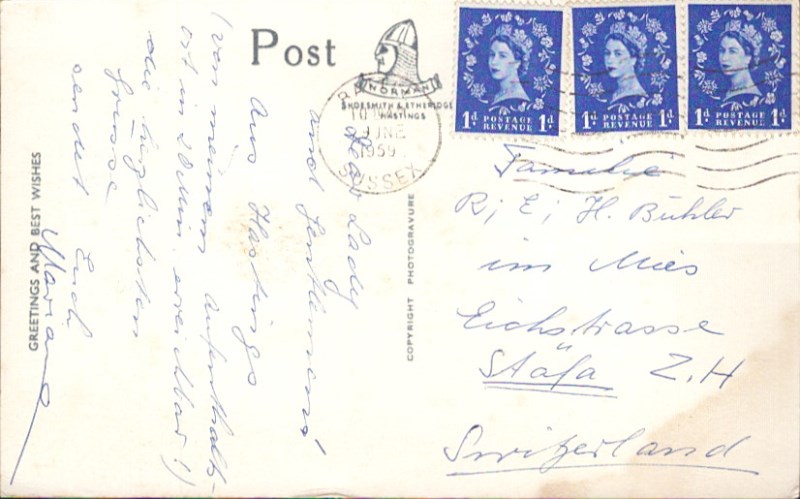 Post
NORMAN
SHOESMITH & ETHERIDGE
HASTINGS
1d POSTAGE REVENUE 1d
1d POSTAGE REVENUE 1d
1d POSTAGE REVENUE 1d
JUNE
1959
SUSSEX
GREETINGS AND BEST WISHES
COPYRIGHT PHOTOGRAVURE
Lady
and Gentlemens!
Aus Hastings
(von meinem Aufenthalts-
ort in 20 Min. erreichbar!)
die herzlichsten
Grüsse
sendet Euch
Familie
R; E; H. Bühler
im Mies
Eichstrasse
Stäfa Z.H
Switzerland